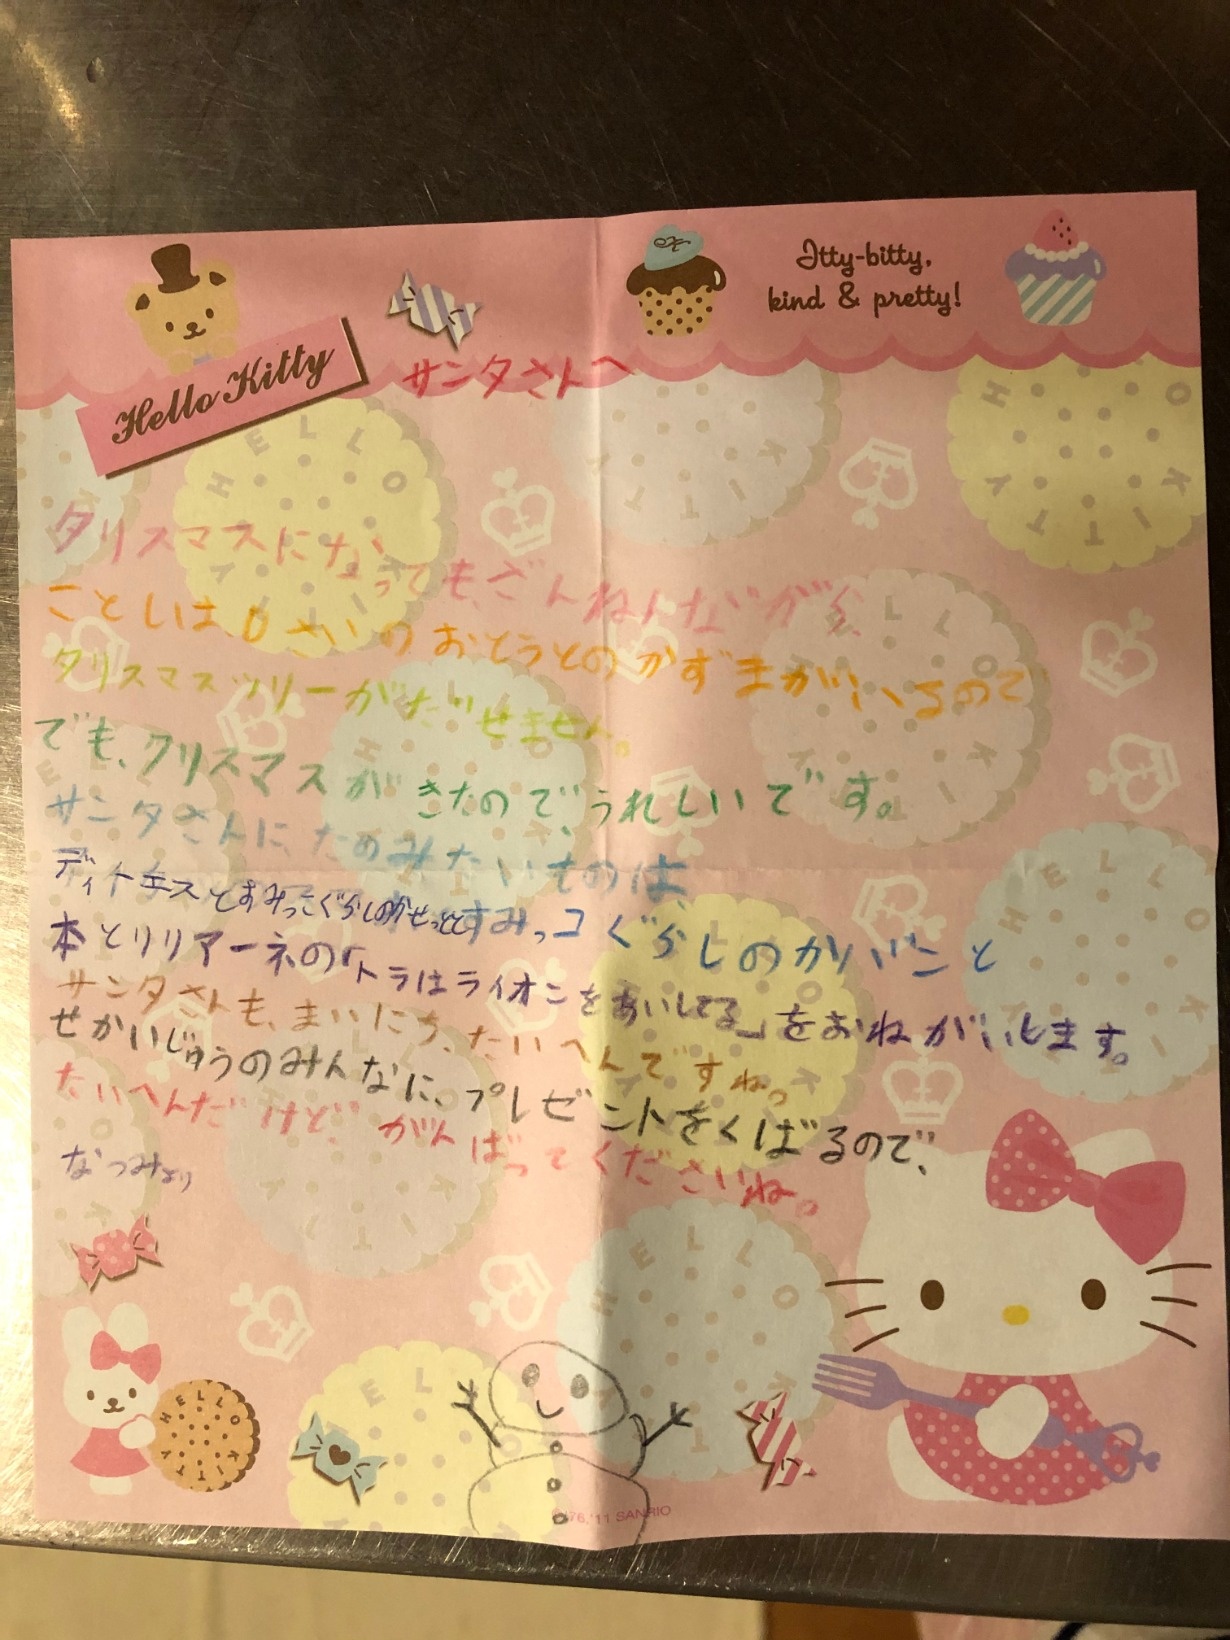 Itty-bitty,
kind & pretty!
Hello Kitty
サンタさんへ
クリスマスになっても、ざんねんながら、
ことしは0さいのおとうとのかずまがいるので
クリスマスツリーがだせません。
でも、クリスマスがきたので、うれしいです。
サンタさんに、ためみたいものは、
すみっコぐらしのかばんと
本とリリアーネの「トラはライオンをあいしてる」をおねがいします。
サンタさんも、まいにち、たいへんですね。
せかいじゅうのみんなに、プレゼントをくばるので、
たいへんだけど、がんばってくださいね。
なつみより
HELLO KITTY
'76,'11 SANRIO